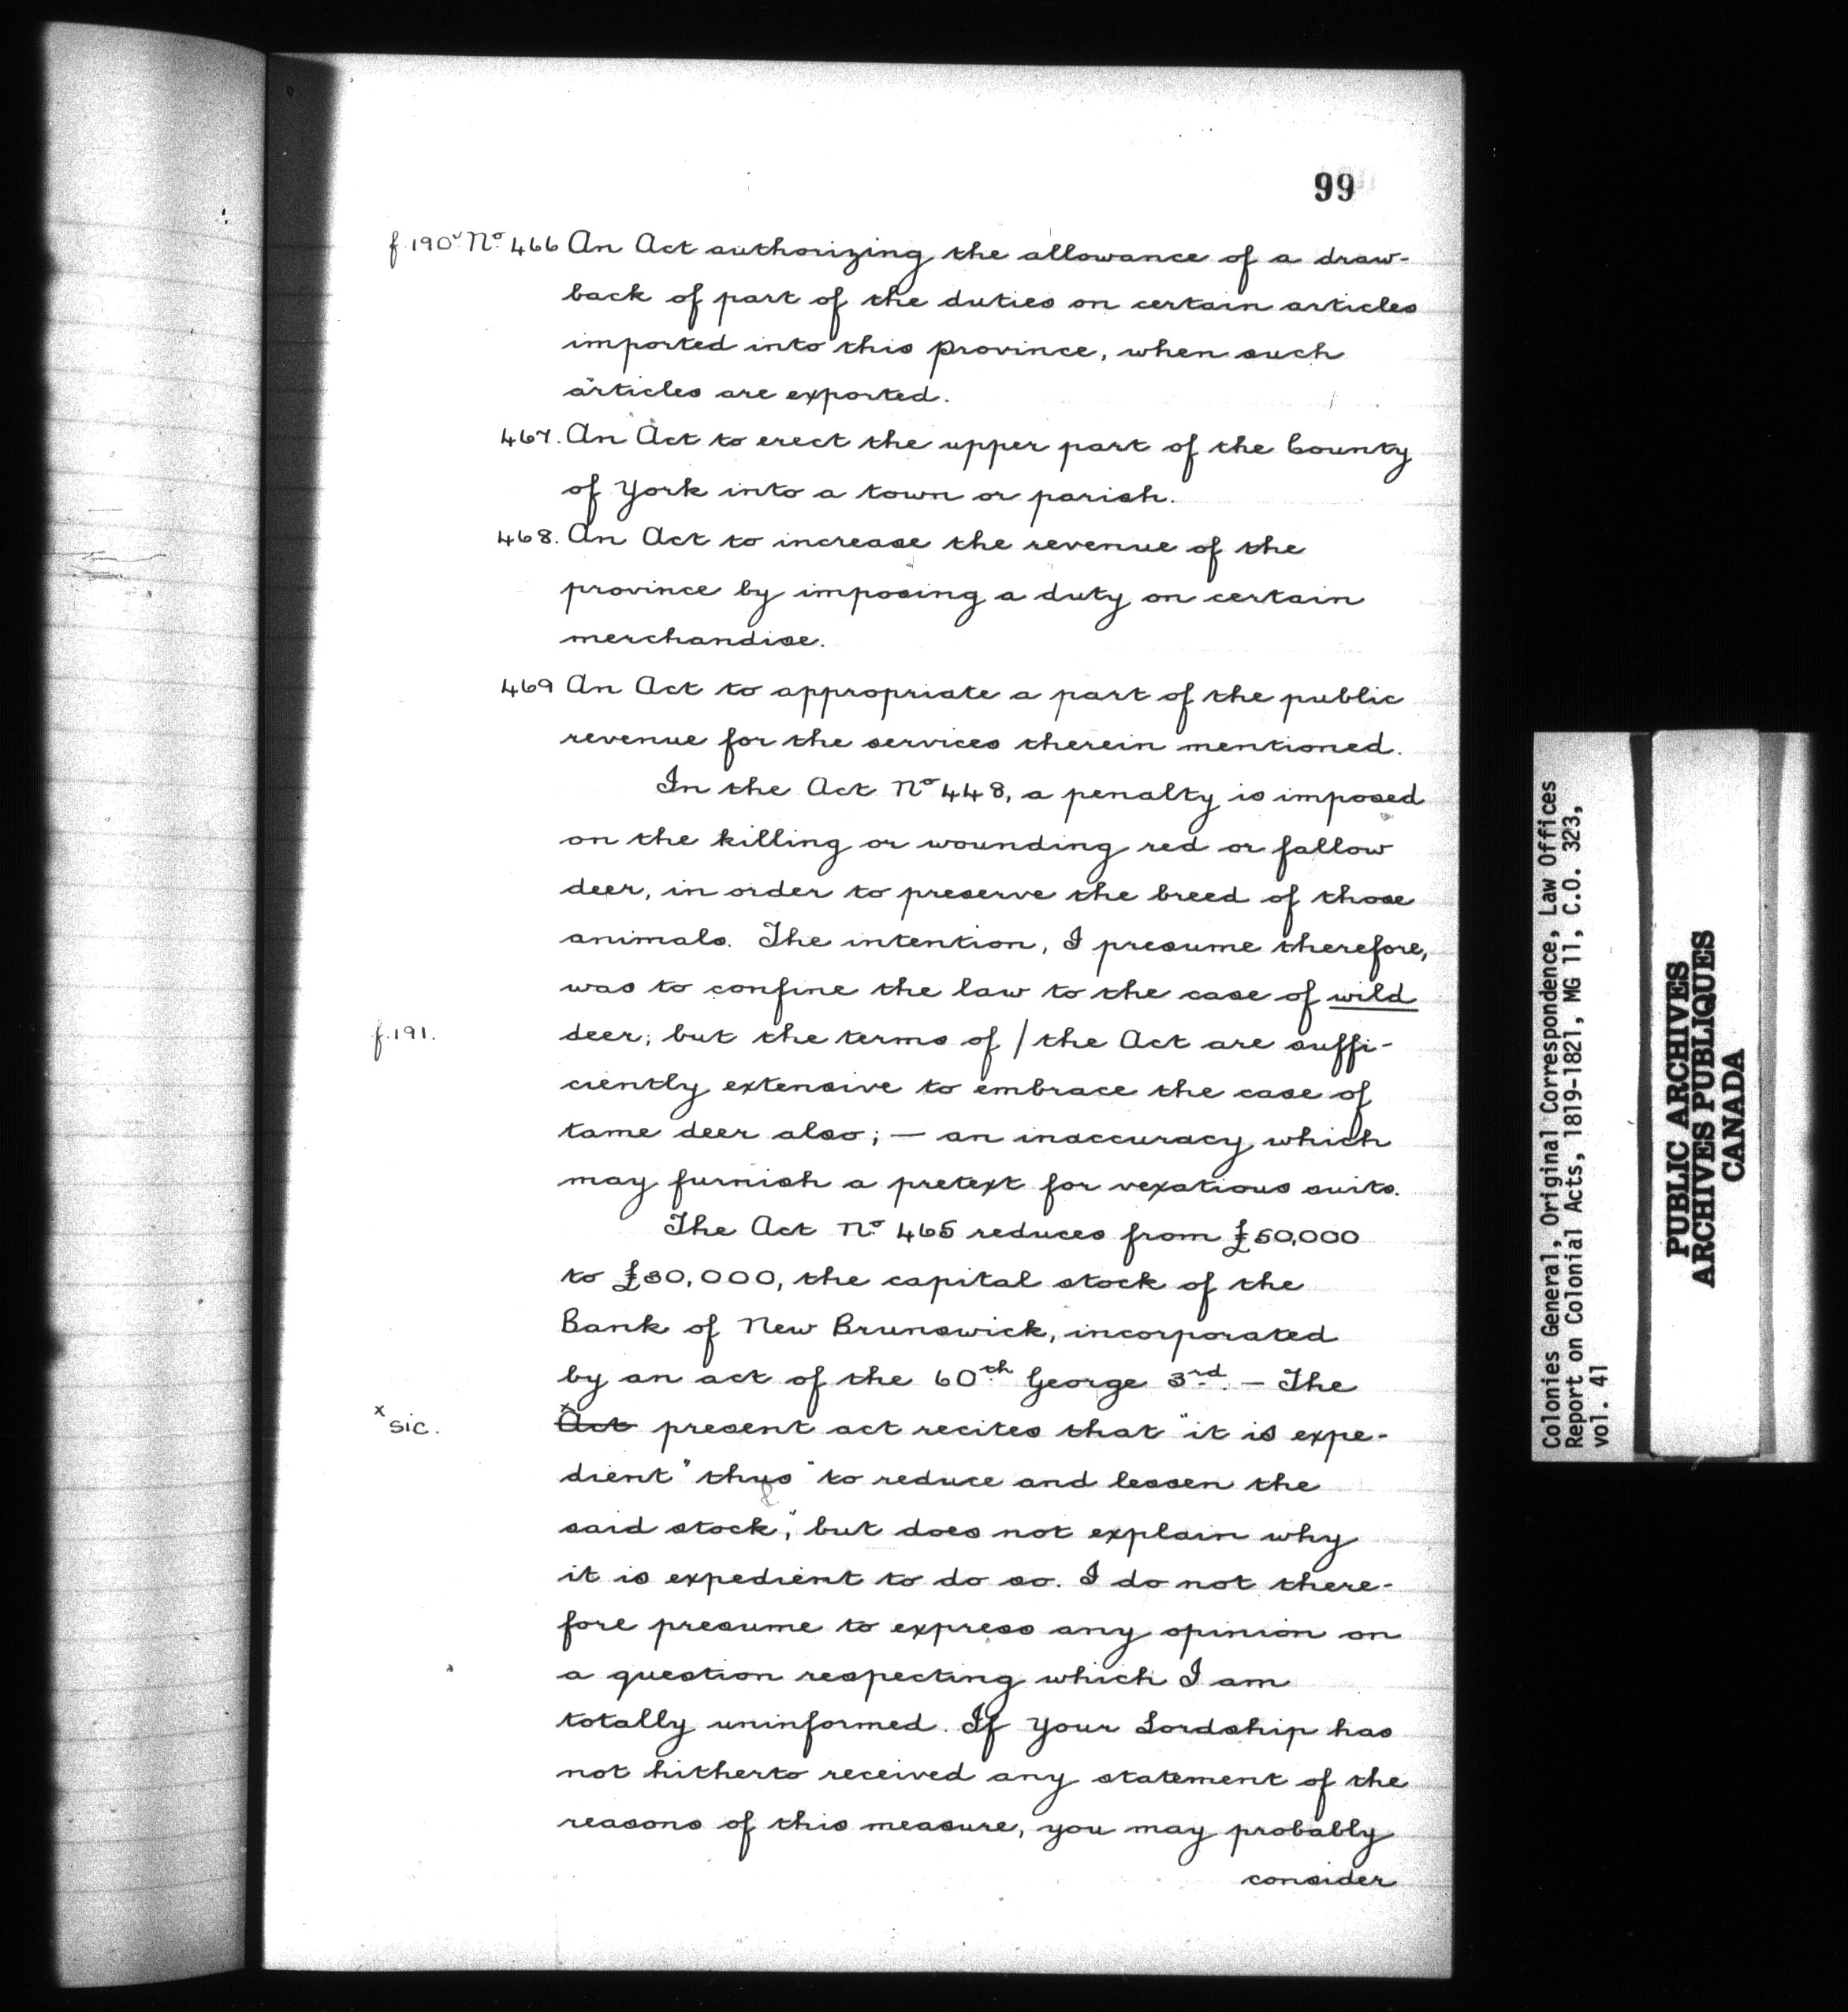 99
f.190ᵛ. Nº. 466 An Act authorizing the allowance of a draw-
back of part of the duties on certain articles
imported into this province, when such
articles are exported.
467. An Act to erect the upper part of the County
of York into a town or parish.
468. An Act to increase the revenue of the
province by imposing a duty on certain
merchandise.
469 An Act to appropriate a part of the public
revenue for the services therein mentioned.
In the Act Nº 448, a penalty is imposed
on the killing or wounding red or fallow
deer, in order to preserve the breed of those
animals. The intention, I presume therefore,
was to confine the law to the case of wild
f.191. deer; but the terms of / the Act are suffi-
ciently extensive to embrace the case of
tame deer also; — an inaccuracy which
may furnish a pretext for vexatious suits.
The Act Nº. 465 reduces from £50,000
to £30,000, the capital stock of the
Bank of New Brunswick, incorporated
by an act of the 60th George 3rd. — The
x sic. xAct present act recites that "it is expe-
dient" thus "to reduce and lessen the
said stock," but does not explain why
it is expedient to do so. I do not there-
fore presume to express any opinion on
a question respecting which I am
totally uninformed. If Your Lordship has
not hitherto received any statement of the
reasons of this measure, you may probably
consider
Colonies General, Original Correspondence, Law Offices
Report on Colonial Acts, 1819-1821, MG 11, C.O. 323,
vol. 41
PUBLIC ARCHIVES
ARCHIVES PUBLIQUES
CANADA